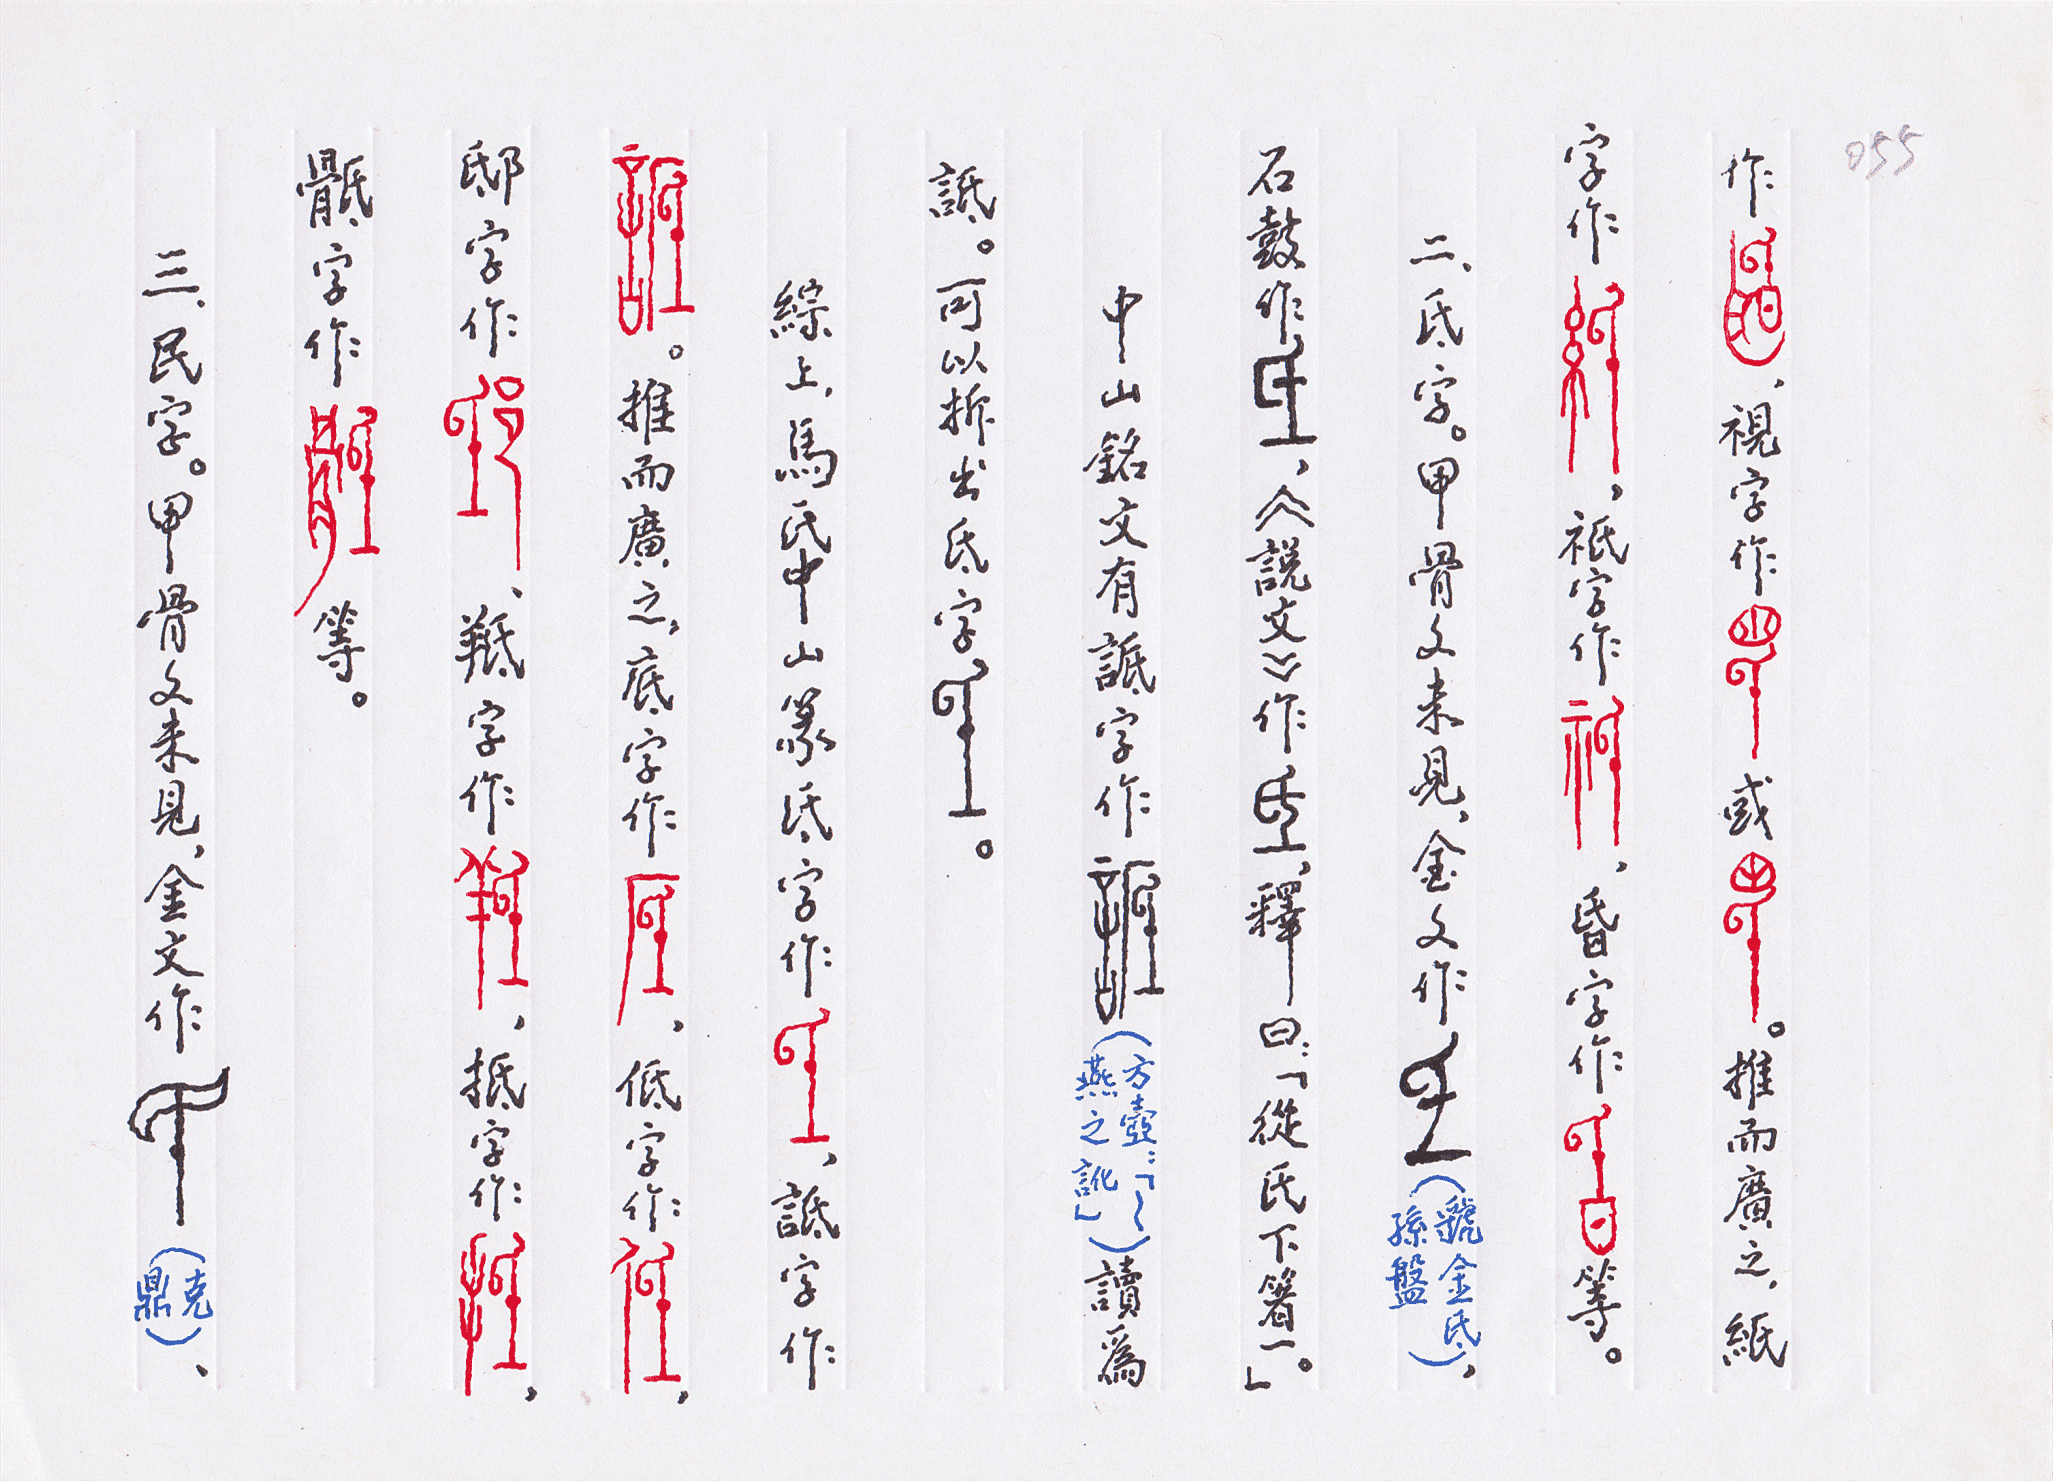 055
作、視字作或。推而廣之,紙
字作、祇字作、昏字作等。
二、氐字。甲骨文未見,金文作(虢金氐孫盤),
石鼓作、《說文》作,釋曰:「從氏下箸一。」
中山銘文有詆字作(方壺:「~燕之訛」)讀爲
詆。可以拆出氐字。
綜上,馬氏中山篆氐字作、詆字作
。推而廣之,底字作、低字作、
邸字作、羝字作、抵字作、
骶字作等。
三、民字。甲骨文未見,金文作(克鼎)、